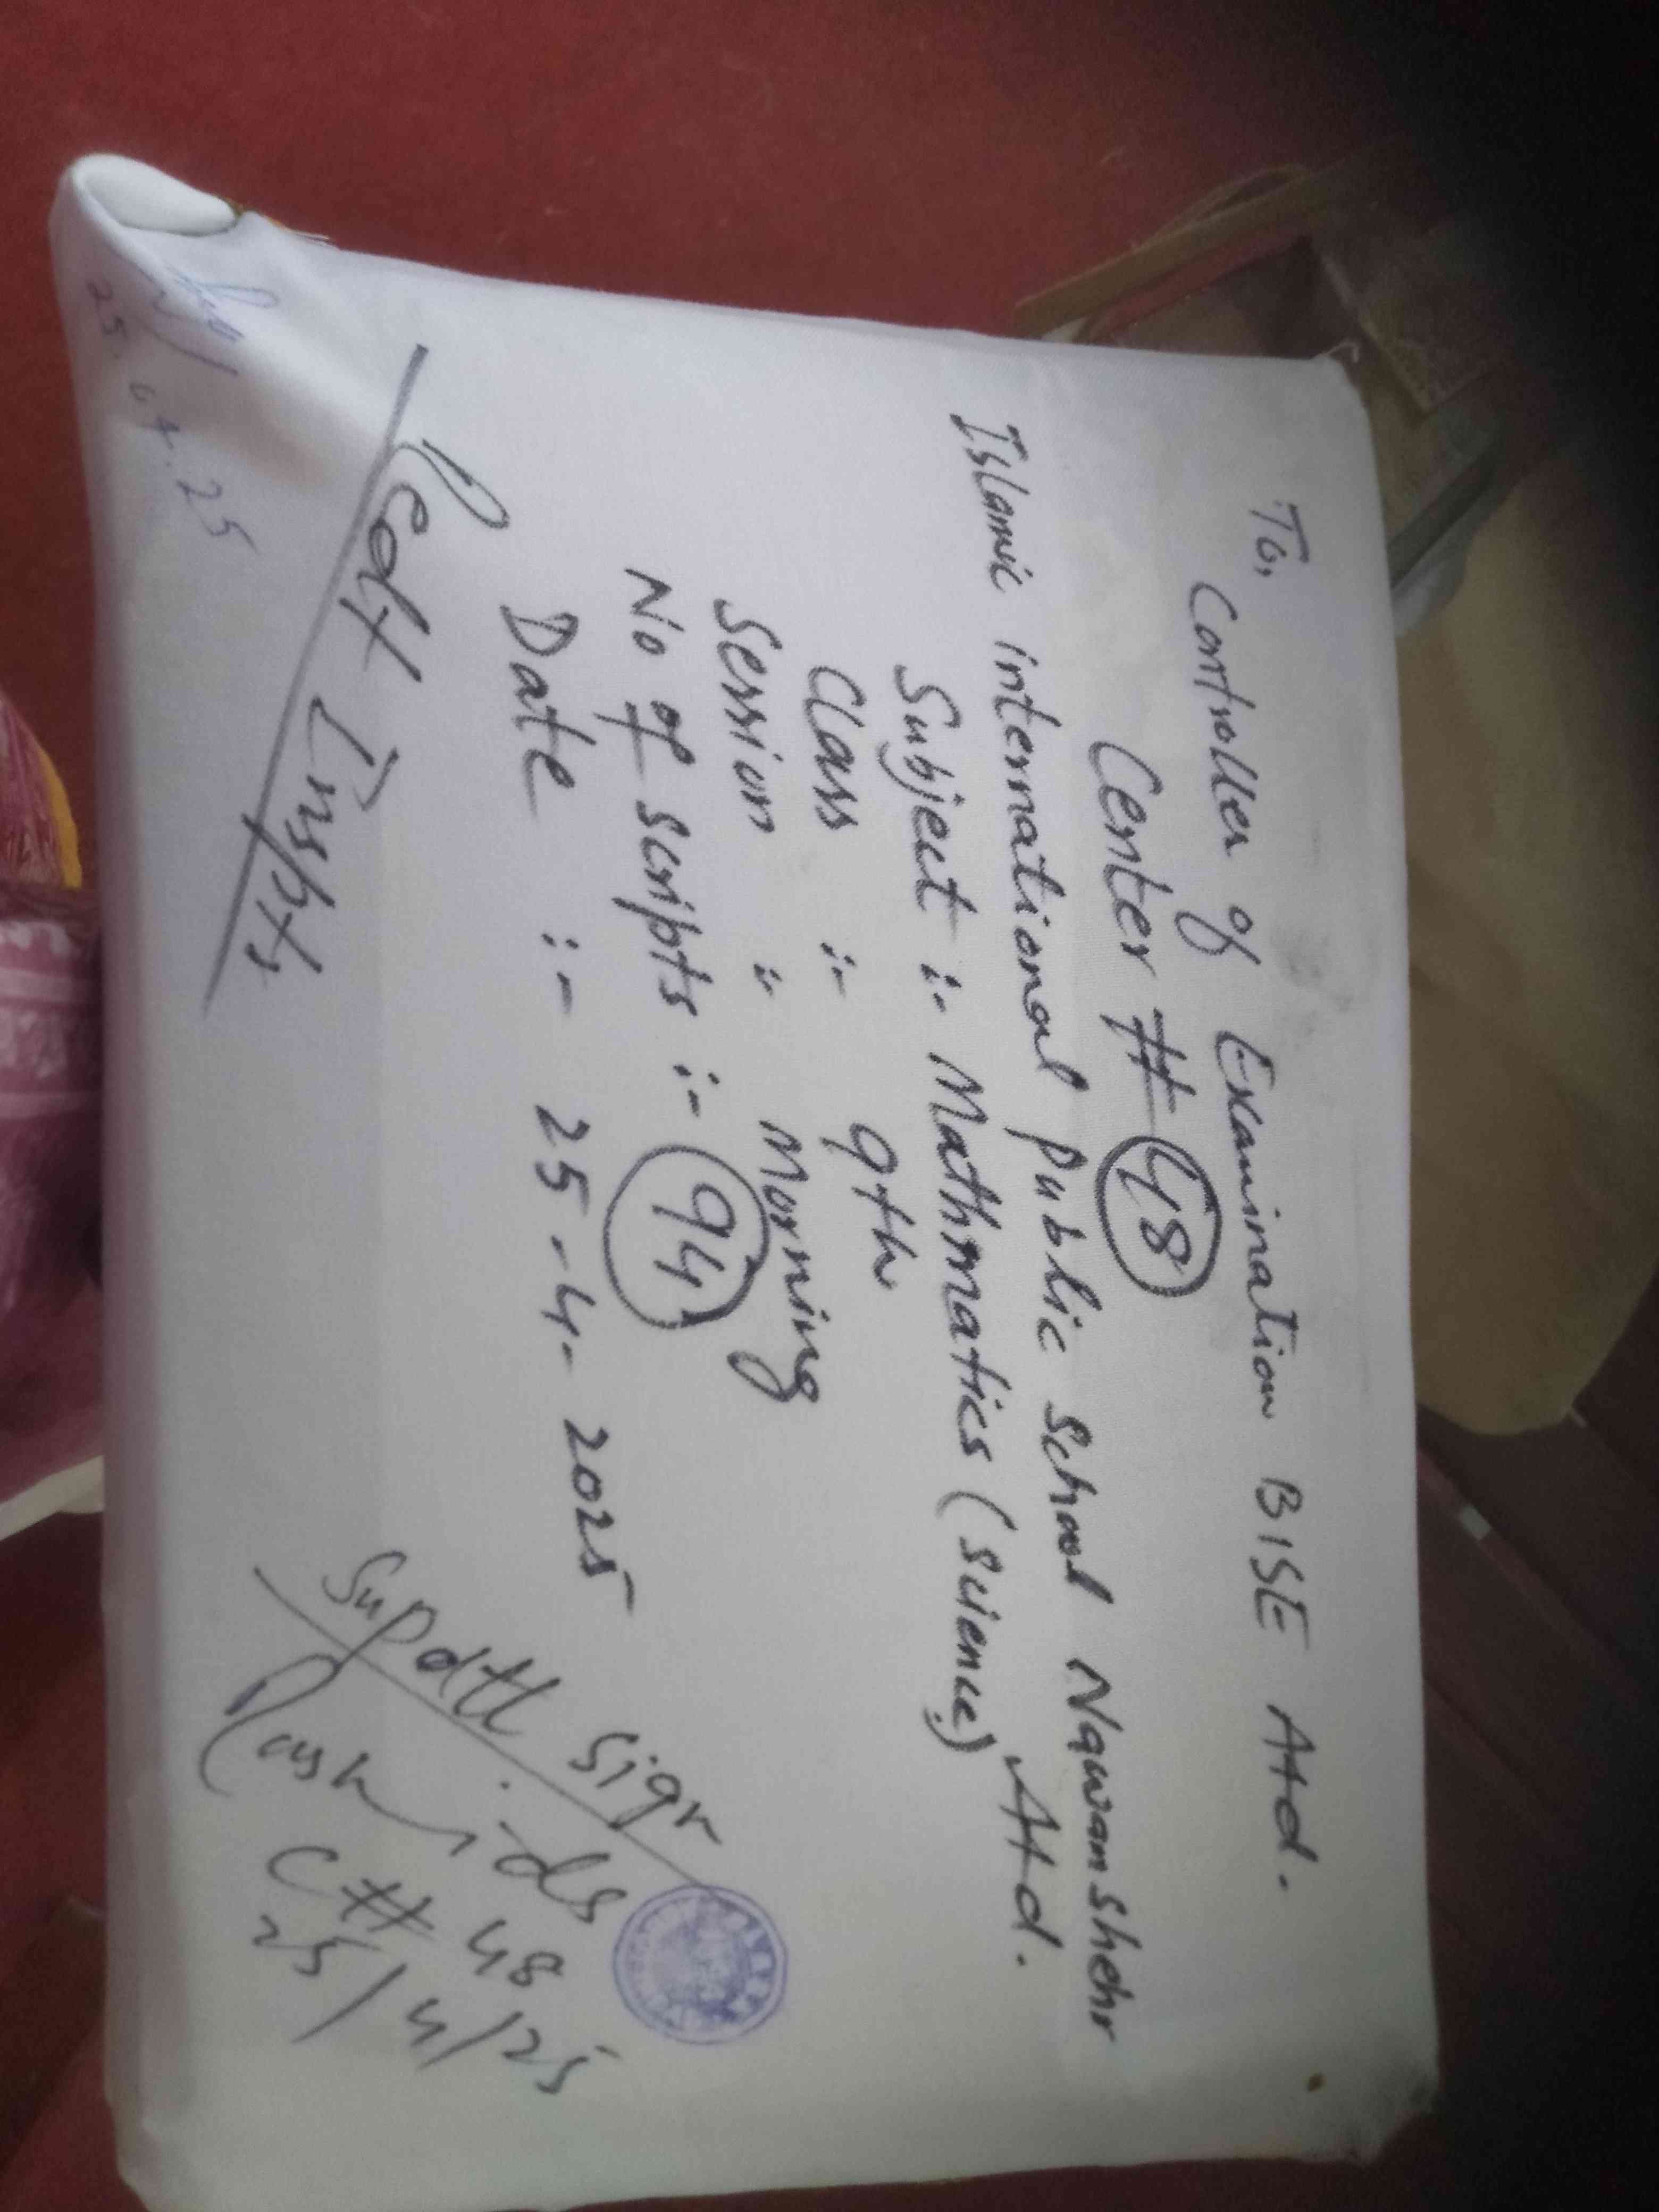 To,
Controller of Examination BISE Atd.
Center # 48
Islamic international public school Nawanshehr Atd.
Subject :- Mathmatics (science)
Class :- 9th
Session :- Morning
No of scripts :- 94
Date :- 25-4-2025
Supdtt sign
C# 48
25/4/25
25.04.25